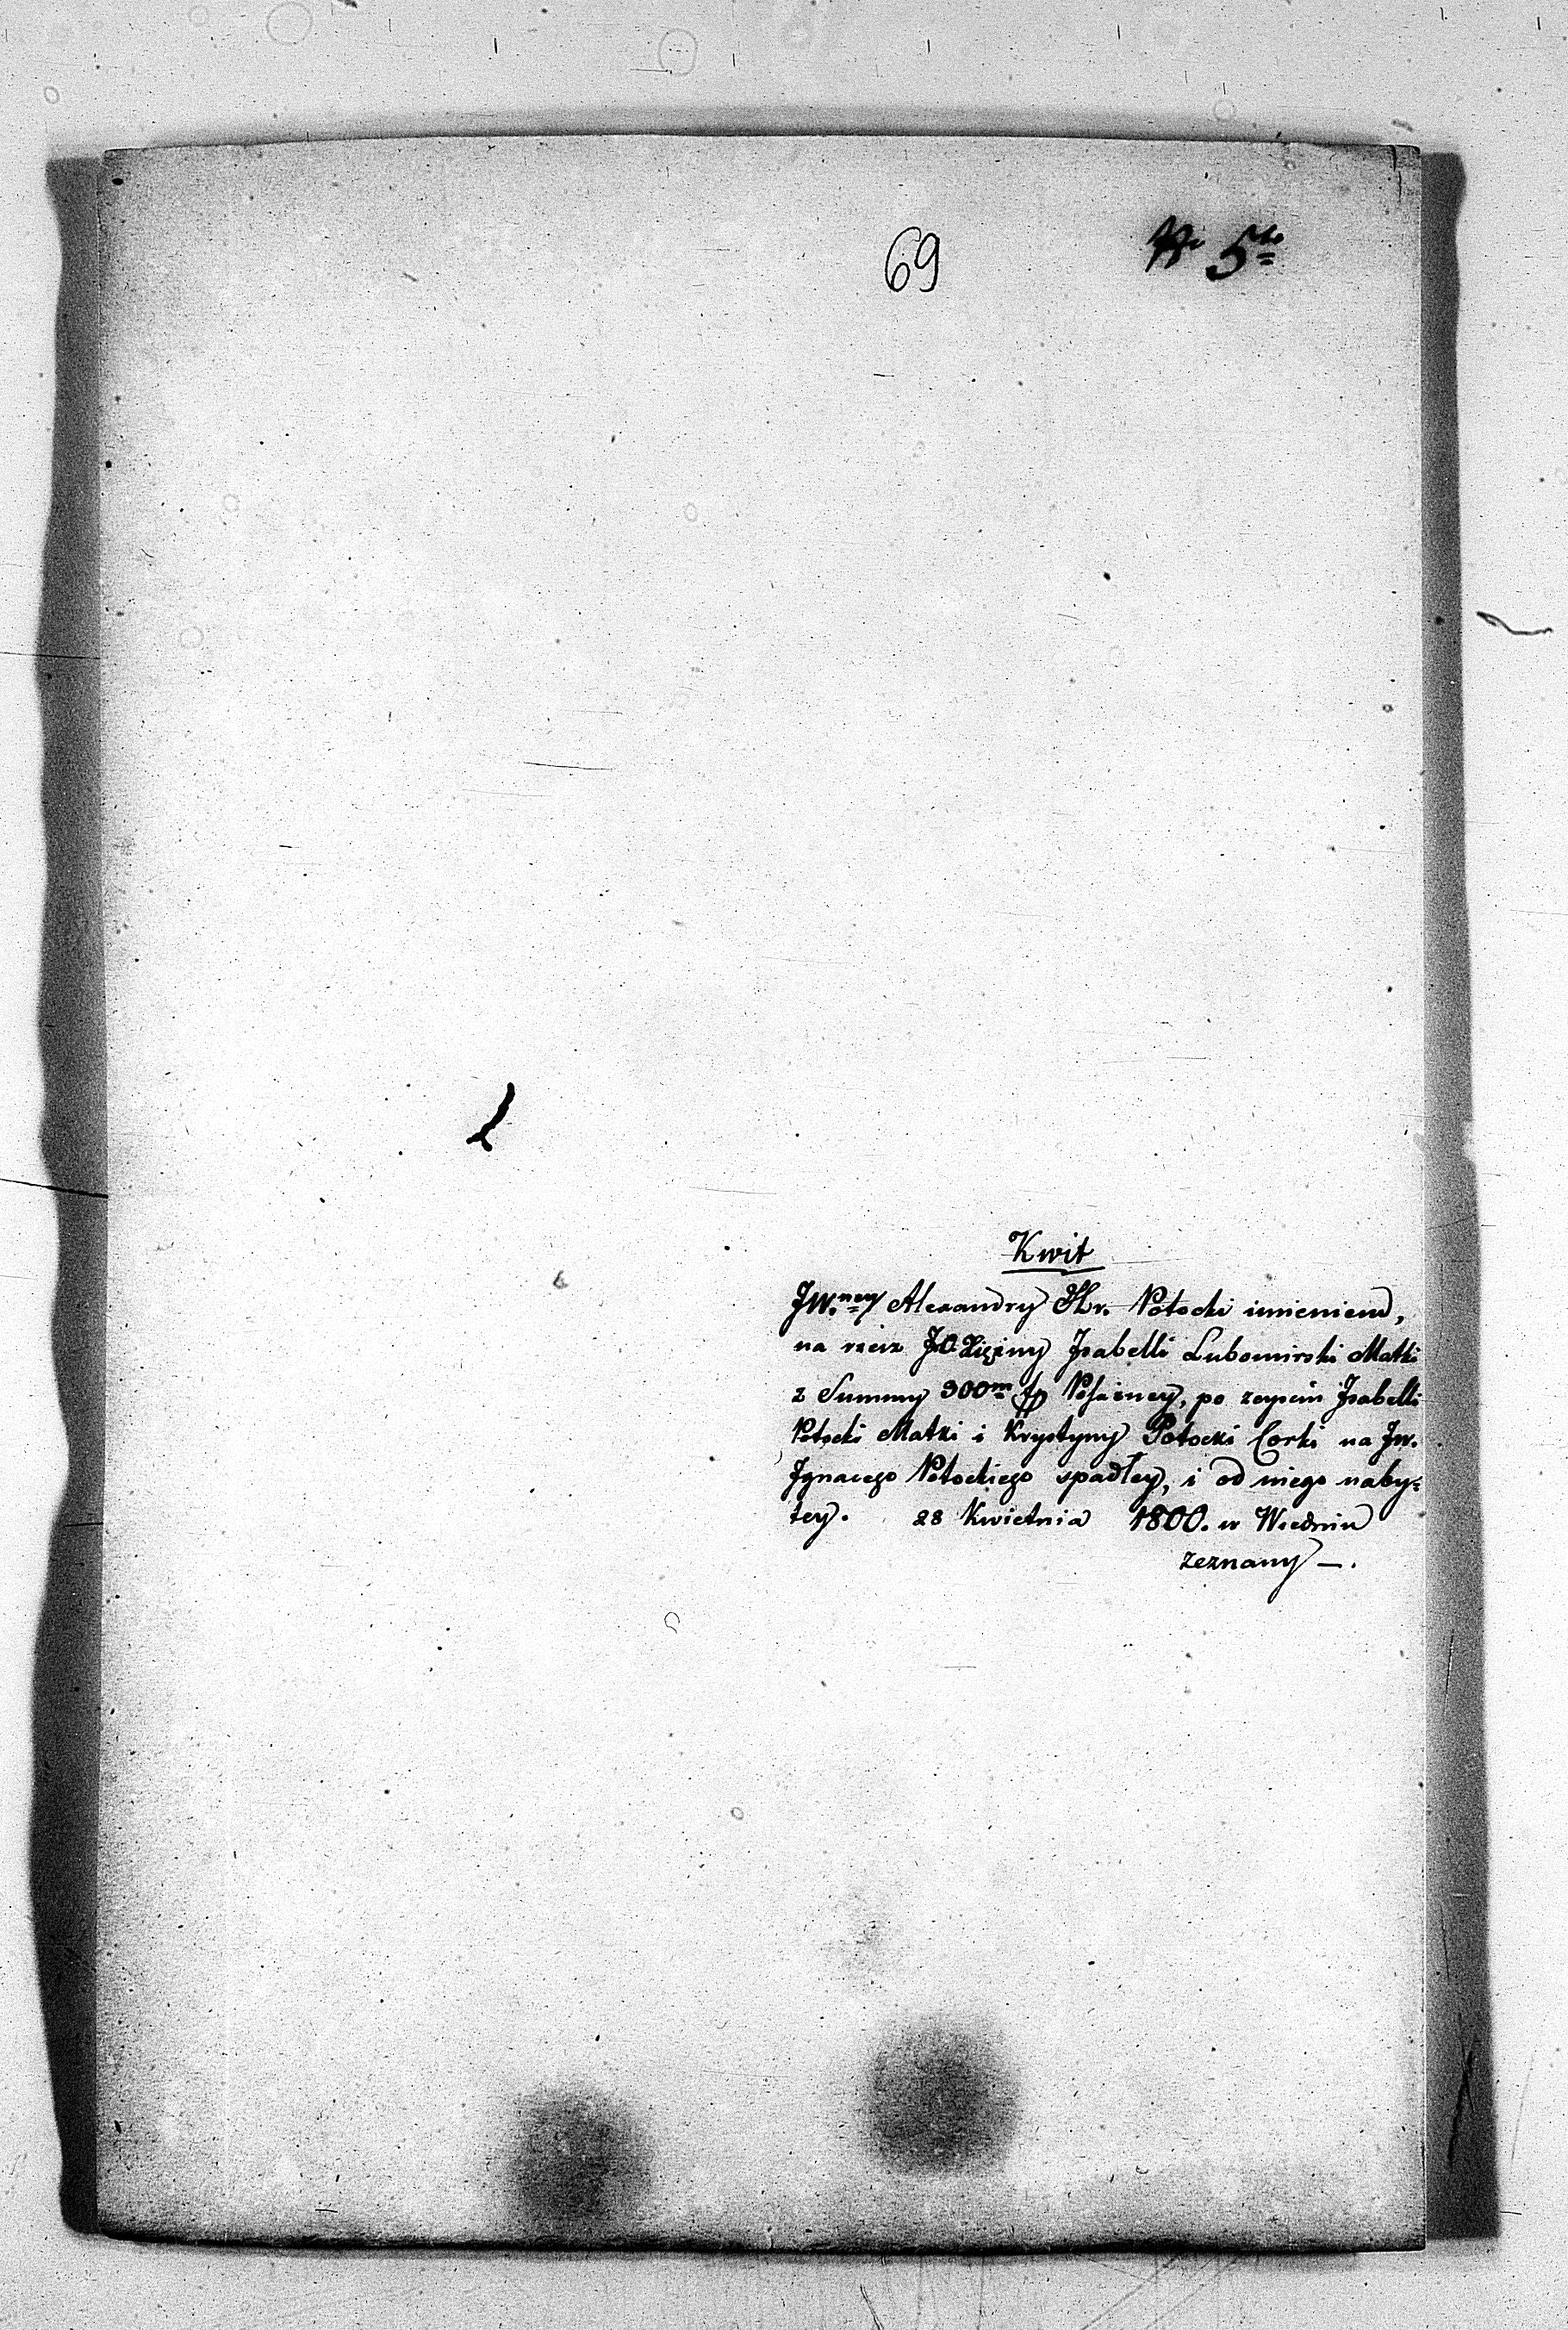 69
Nr 5to
Kwit
JW.ney Alexandry Hr. Potocki imieniem,
na rzecz JO Xiężny Isabelli Lubomirski Matki
z Summy 900m fp Posażney, po zeyściu Isabelli
Potocki Matki i Krystyny Potocki Corki na JW.
Ignacego Potockiego spadłey, i od niego naby=
tey. 28 Kwietnia 1800. w Wiedniu
zeznany —.